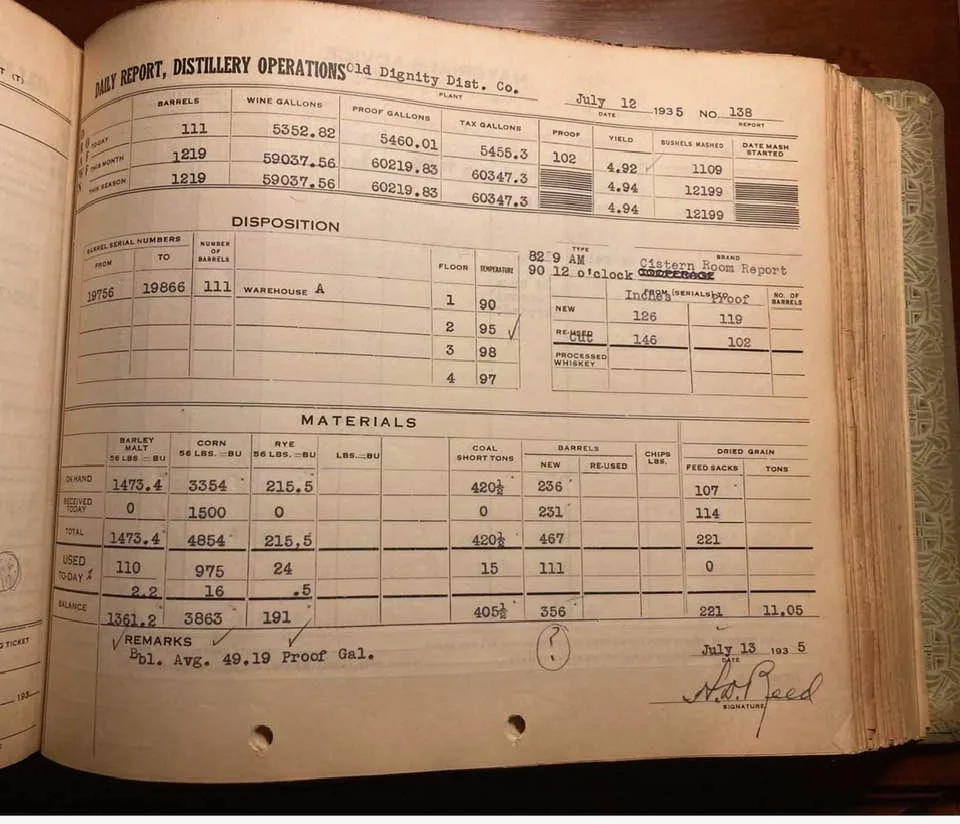 T (T)
DAILY REPORT, DISTILLERY OPERATIONS Old Dignity Dist. Co.
PLANT
July 12 1935 NO. 138
DATE REPORT
BARRELS WINE GALLONS PROOF GALLONS TAX GALLONS PROOF YIELD BUSHELS MASHED DATE MASH STARTED
TO-DAY 111 5352.82 5460.01 5455.3 102 4.92 1109
THIS MONTH 1219 59037.56 60219.83 60347.3 4.94 12199
THIS SEASON 1219 59037.56 60219.83 60347.3 4.94 12199
DISPOSITION
BARREL SERIAL NUMBERS NUMBER OF BARRELS
FROM TO
FLOOR TEMPERATURE
19756 19866 111 WAREHOUSE A
1 90
2 95 ✓
3 98
4 97
TYPE BRAND
82 9 AM
90 12 o'clock Cistern Room Report
COOPERAGE
FROM (SERIALS) TO NO. OF BARRELS
Inches Proof
NEW 126 119
RE-USED
Cut 146 102
PROCESSED WHISKEY
MATERIALS
BARLEY MALT 56 LBS.=BU CORN 56 LBS.=BU RYE 56 LBS.=BU LBS.=BU COAL SHORT TONS BARRELS CHIPS LBS. DRIED GRAIN
NEW RE-USED FEED SACKS TONS
ON HAND 1473.4 3354 215.5 420½ 236 107
RECEIVED TODAY 0 1500 0 0 231 114
TOTAL 1473.4 4854 215,5 420½ 467 221
USED TO-DAY % 110 975 24 15 111 0
2.2 16 .5
BALANCE 1361.2 3863 191 405½ 356 221 11.05
REMARKS
Bbl. Avg. 49.19 Proof Gal.
?
July 13 1935
DATE
H.D. Reed
SIGNATURE
G TICKET
193